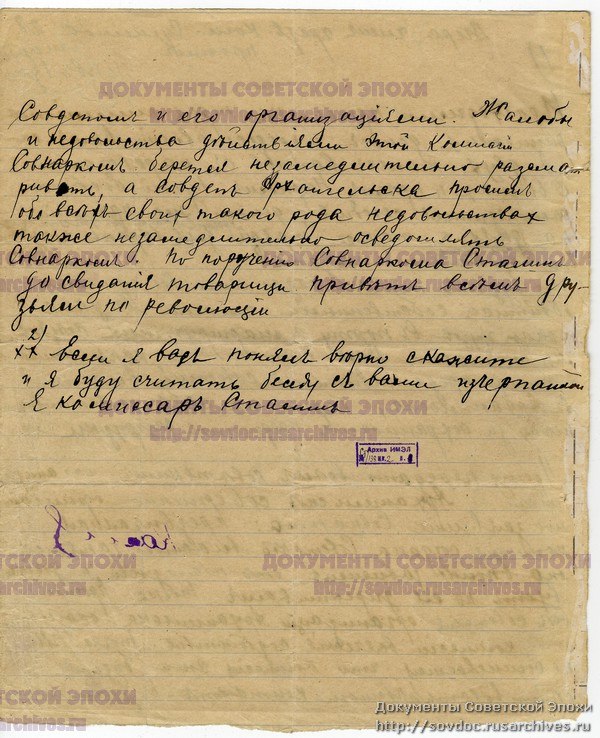 Совдепомъ и его организаціями. Жалобы
и недовольства дѣйствіями этой Комиссіи
Совнаркомъ берется незамедлительно разсмат-
ривать, а совдепъ Архангельска просимъ
обо всѣхъ своих такого рода недовольствах
также незамедлительно осведомлять
Совнаркомъ. По поручению Совнаркома Сталинъ
До свидания товарищи привѣтъ всѣмъ дру-
зьям по революціи
2)
хх Если я васъ понялъ вѣрно скажите
и я буду считать беседу съ вами исчерпанной
Я комиссаръ Сталинъ
Архив ИМЭЛ
ДОКУМЕНТЫ СОВЕТСКОЙ ЭПОХИ
http://sovdoc.rusarchives.ru
Документы Советской Эпохи
http://sovdoc.rusarchives.ru